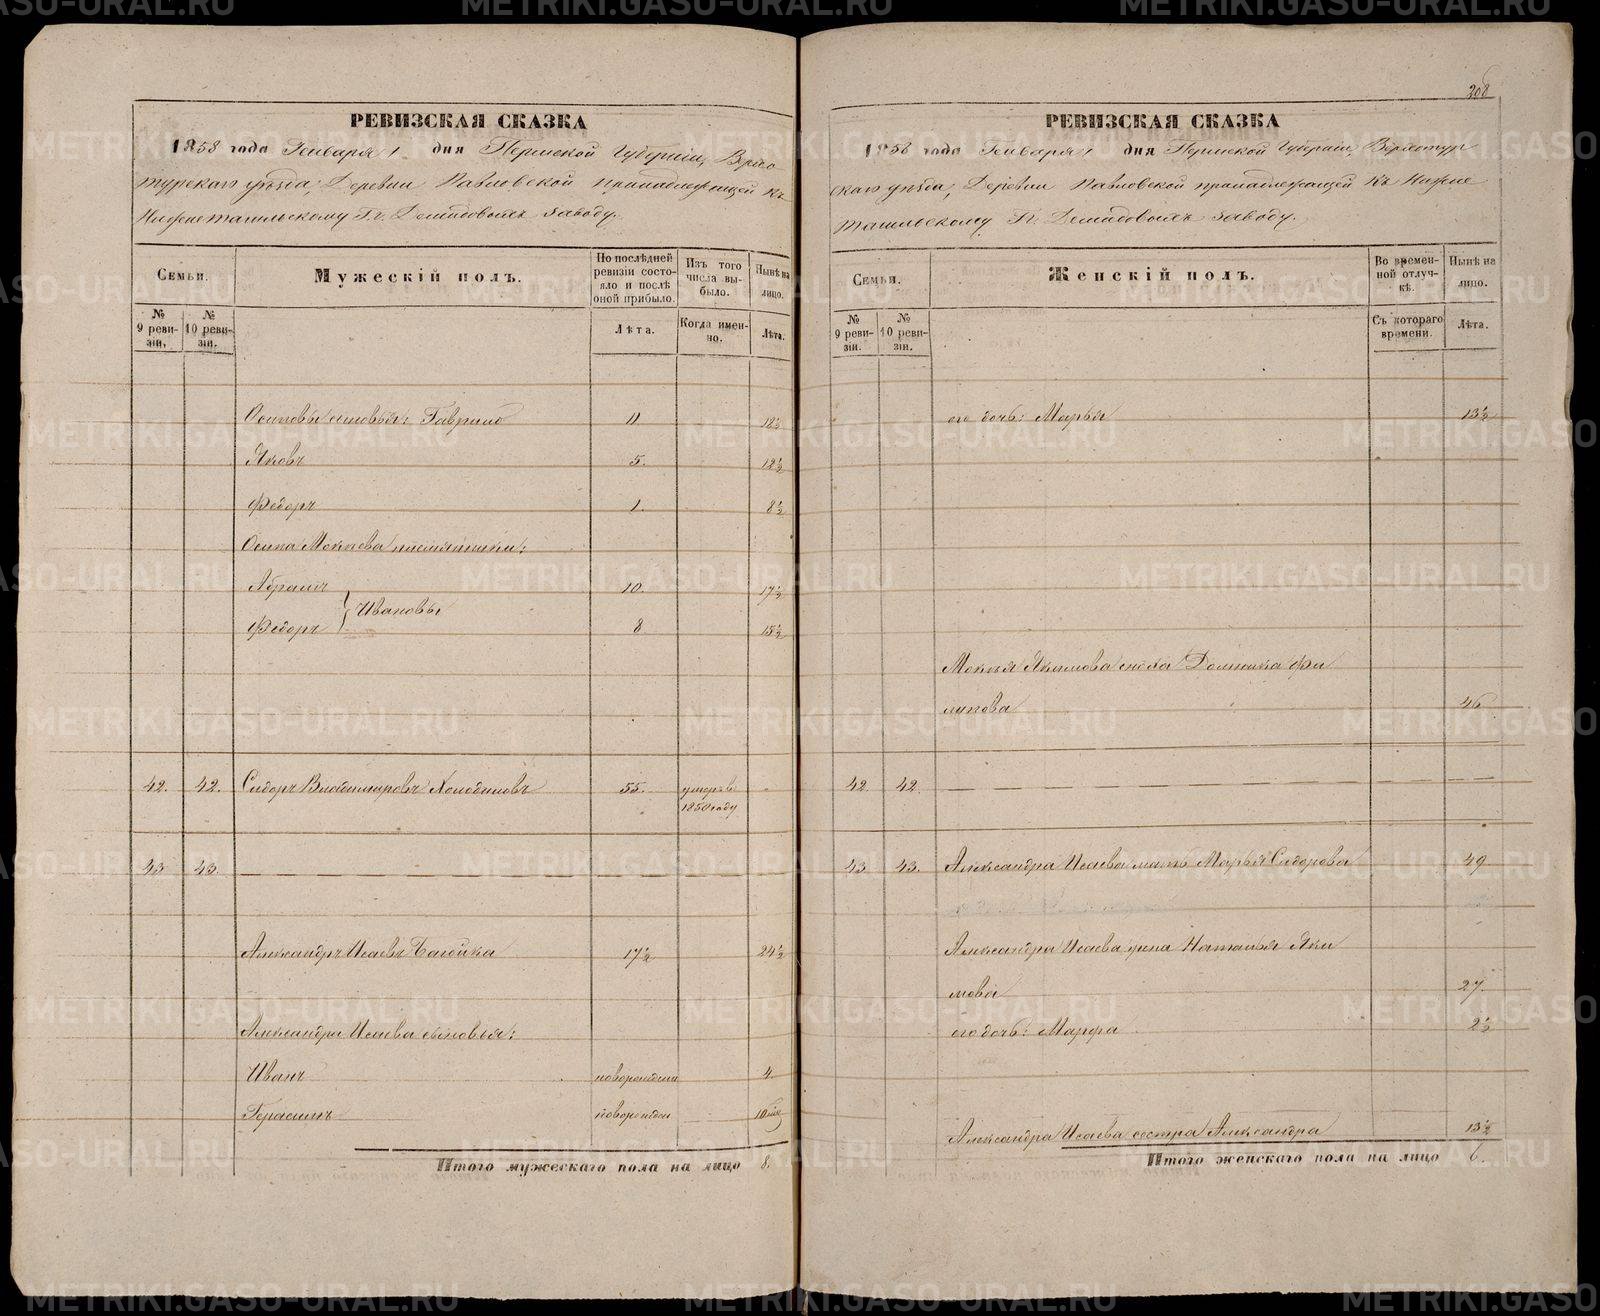 РЕВИЗСКАЯ СКАЗКА
1858 года Генваря 1 дня Пермской Губернии, Верхо
турскаго уезда, Деревни Павловской принадлежащей Къ
Нижнетагильскому Гг. Демидовыхъ заводу.
Семьи.
№ 9 реви-зіи.
№ 10 реви-зіи.
Мужескій полъ.
По последней ревизіи состо-яло и после оной прибыло.
Лѣта.
Изъ того числа вы-было.
Когда имен-но.
Ныне на лицо.
Лѣта.
Осиповы сыновья: Гаврило 11 18½
Яковъ 5. 12½
Федоръ 1. 8½
Осипа Мокеева племянники:
Абрамъ 10. 17½
} Ивановы
Федоръ 8 15½
42. 42. Сидоръ 55. умеръ в
1850 году
43 43.
Александръ Исаевъ 17½ 24½
Александра Исаева сыновья:
Иванъ новорожден 4.
Герасимъ новорожден 10 мѣс
Итого мужескаго пола на лицо 8.
208
РЕВИЗСКАЯ СКАЗКА
1858 года Генваря 1 дня Пермской Губерніи, Верхотур
скаго уезда, Деревни Павловской принадлежащей Къ Нижне
тагильскому Гг. Демидовыхъ заводу.
Семьи.
№ 9 реви-зіи.
№ 10 реви-зіи.
Женскій полъ.
Во времен-ной отлуч-кѣ.
Съ котораго времени.
Ныне на лицо.
Лѣта.
его дочь: Марья 13½
Мокея Якимова сноха Домника Фи
липова 46
42 42.
43. 43. Александра Исаева мать Марья Сидорова 49
Александра Исаева жена Наталья Яки
мова 27.
его дочь: Марфа 2½
Александра Исаева сестра Александра 13½
Итого женскаго пола на лицо 6.
METRIKI.GASO-URAL.RU